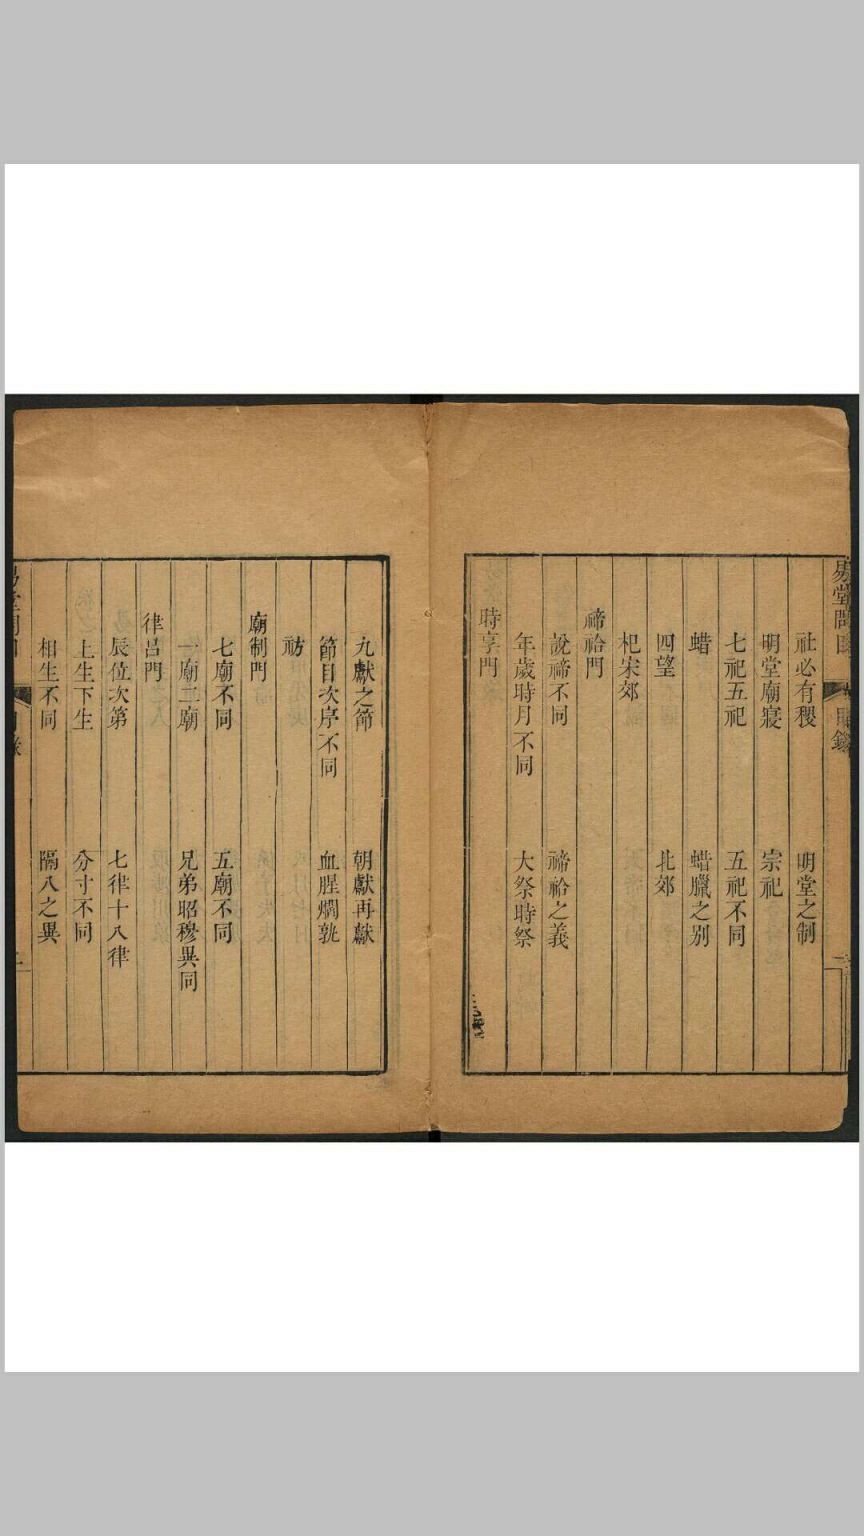 易堂問目
目錄
社必有稷 明堂之制
明堂廟寢 宗祀
七祀五祀 五祀不同
蜡 蜡臘之别
四望 北郊
杞宋郊
禘祫門
說禘不同 禘祫之義
年歲時月不同 大祭時祭
時享門
九獻之節 朝獻再獻
節目次序不同 血腥爓孰
祊
廟制門
七廟不同 五廟不同
一廟二廟 兄弟昭穆異同
律吕門
辰位次第 七律十八律
上生下生 分寸不同
相生不同 隔八之異